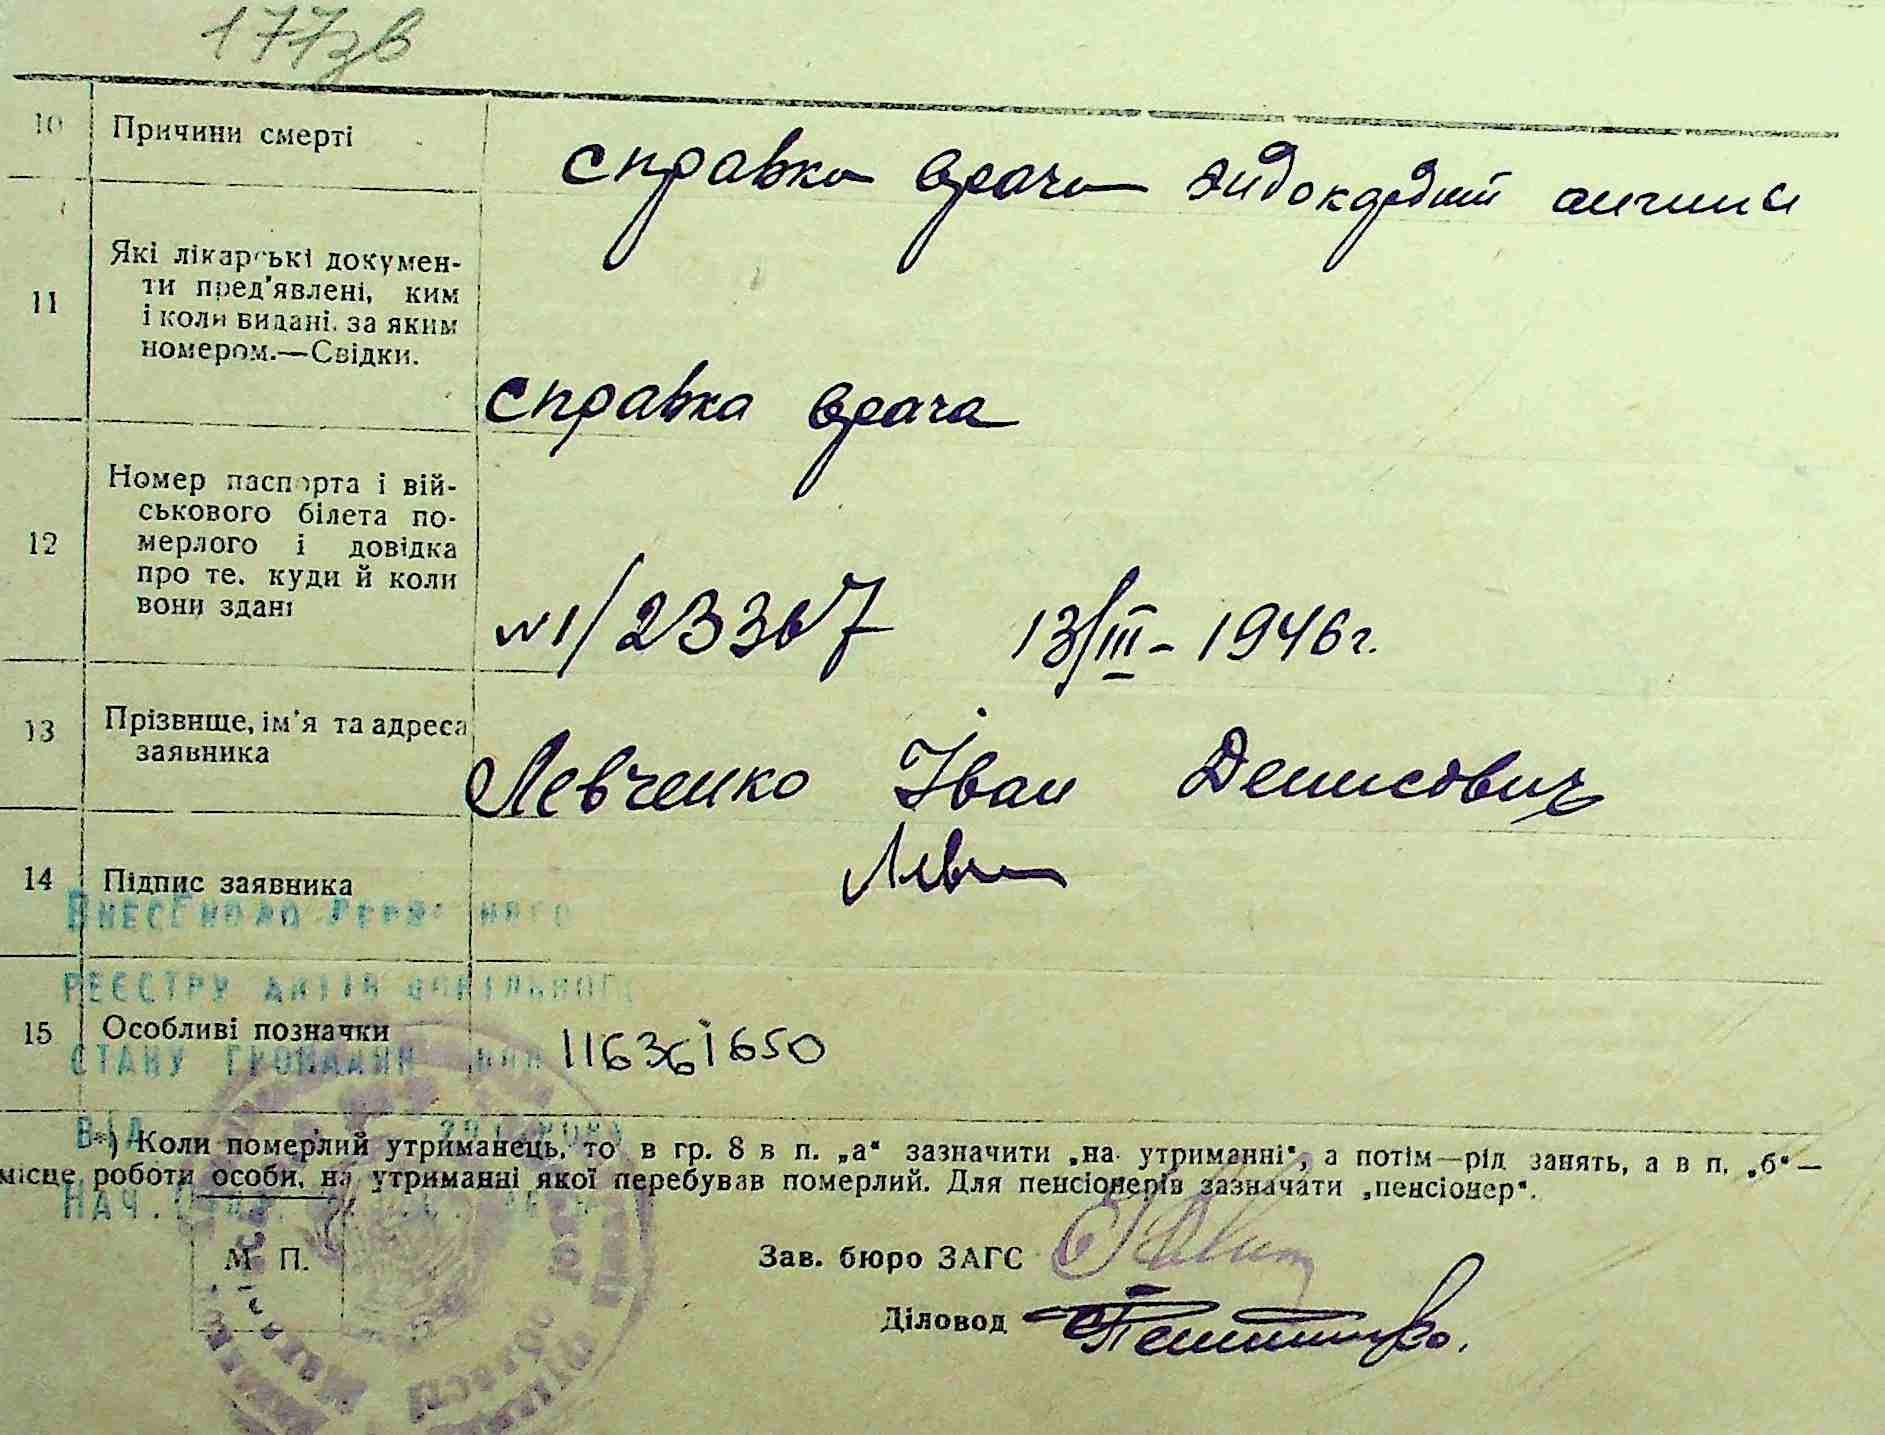 177зв
10 Причини смерті справка врача эндокардит ангина
11 Які лікарські докумен-
ти пред'явлені, ким
і коли видані, за яким
номером.—Свідки.
справка врача
12 Номер паспорта і вій-
ськового білета по-
мерлого і довідка
про те, куди й коли
вони здані
№1/23367 13/III - 1946г.
13 Прізвище, ім'я та адреса
заявника
Левченко Іван Денисович
14 Підпис заявника Лев
Внесено до Державного
реєстру актів цивільного
15 Особливі позначки 116361650
стану громадян
від
*) Коли померлий утриманець, то в гр. 8 в п. „а“ зазначити „на утриманні“, а потім—рід занять, а в п. „б“—
місце роботи особи, на утриманні якої перебував померлий. Для пенсіонерів зазначати „пенсіонер“.
Нач.
М. П. Зав. бюро ЗАГС
Діловод